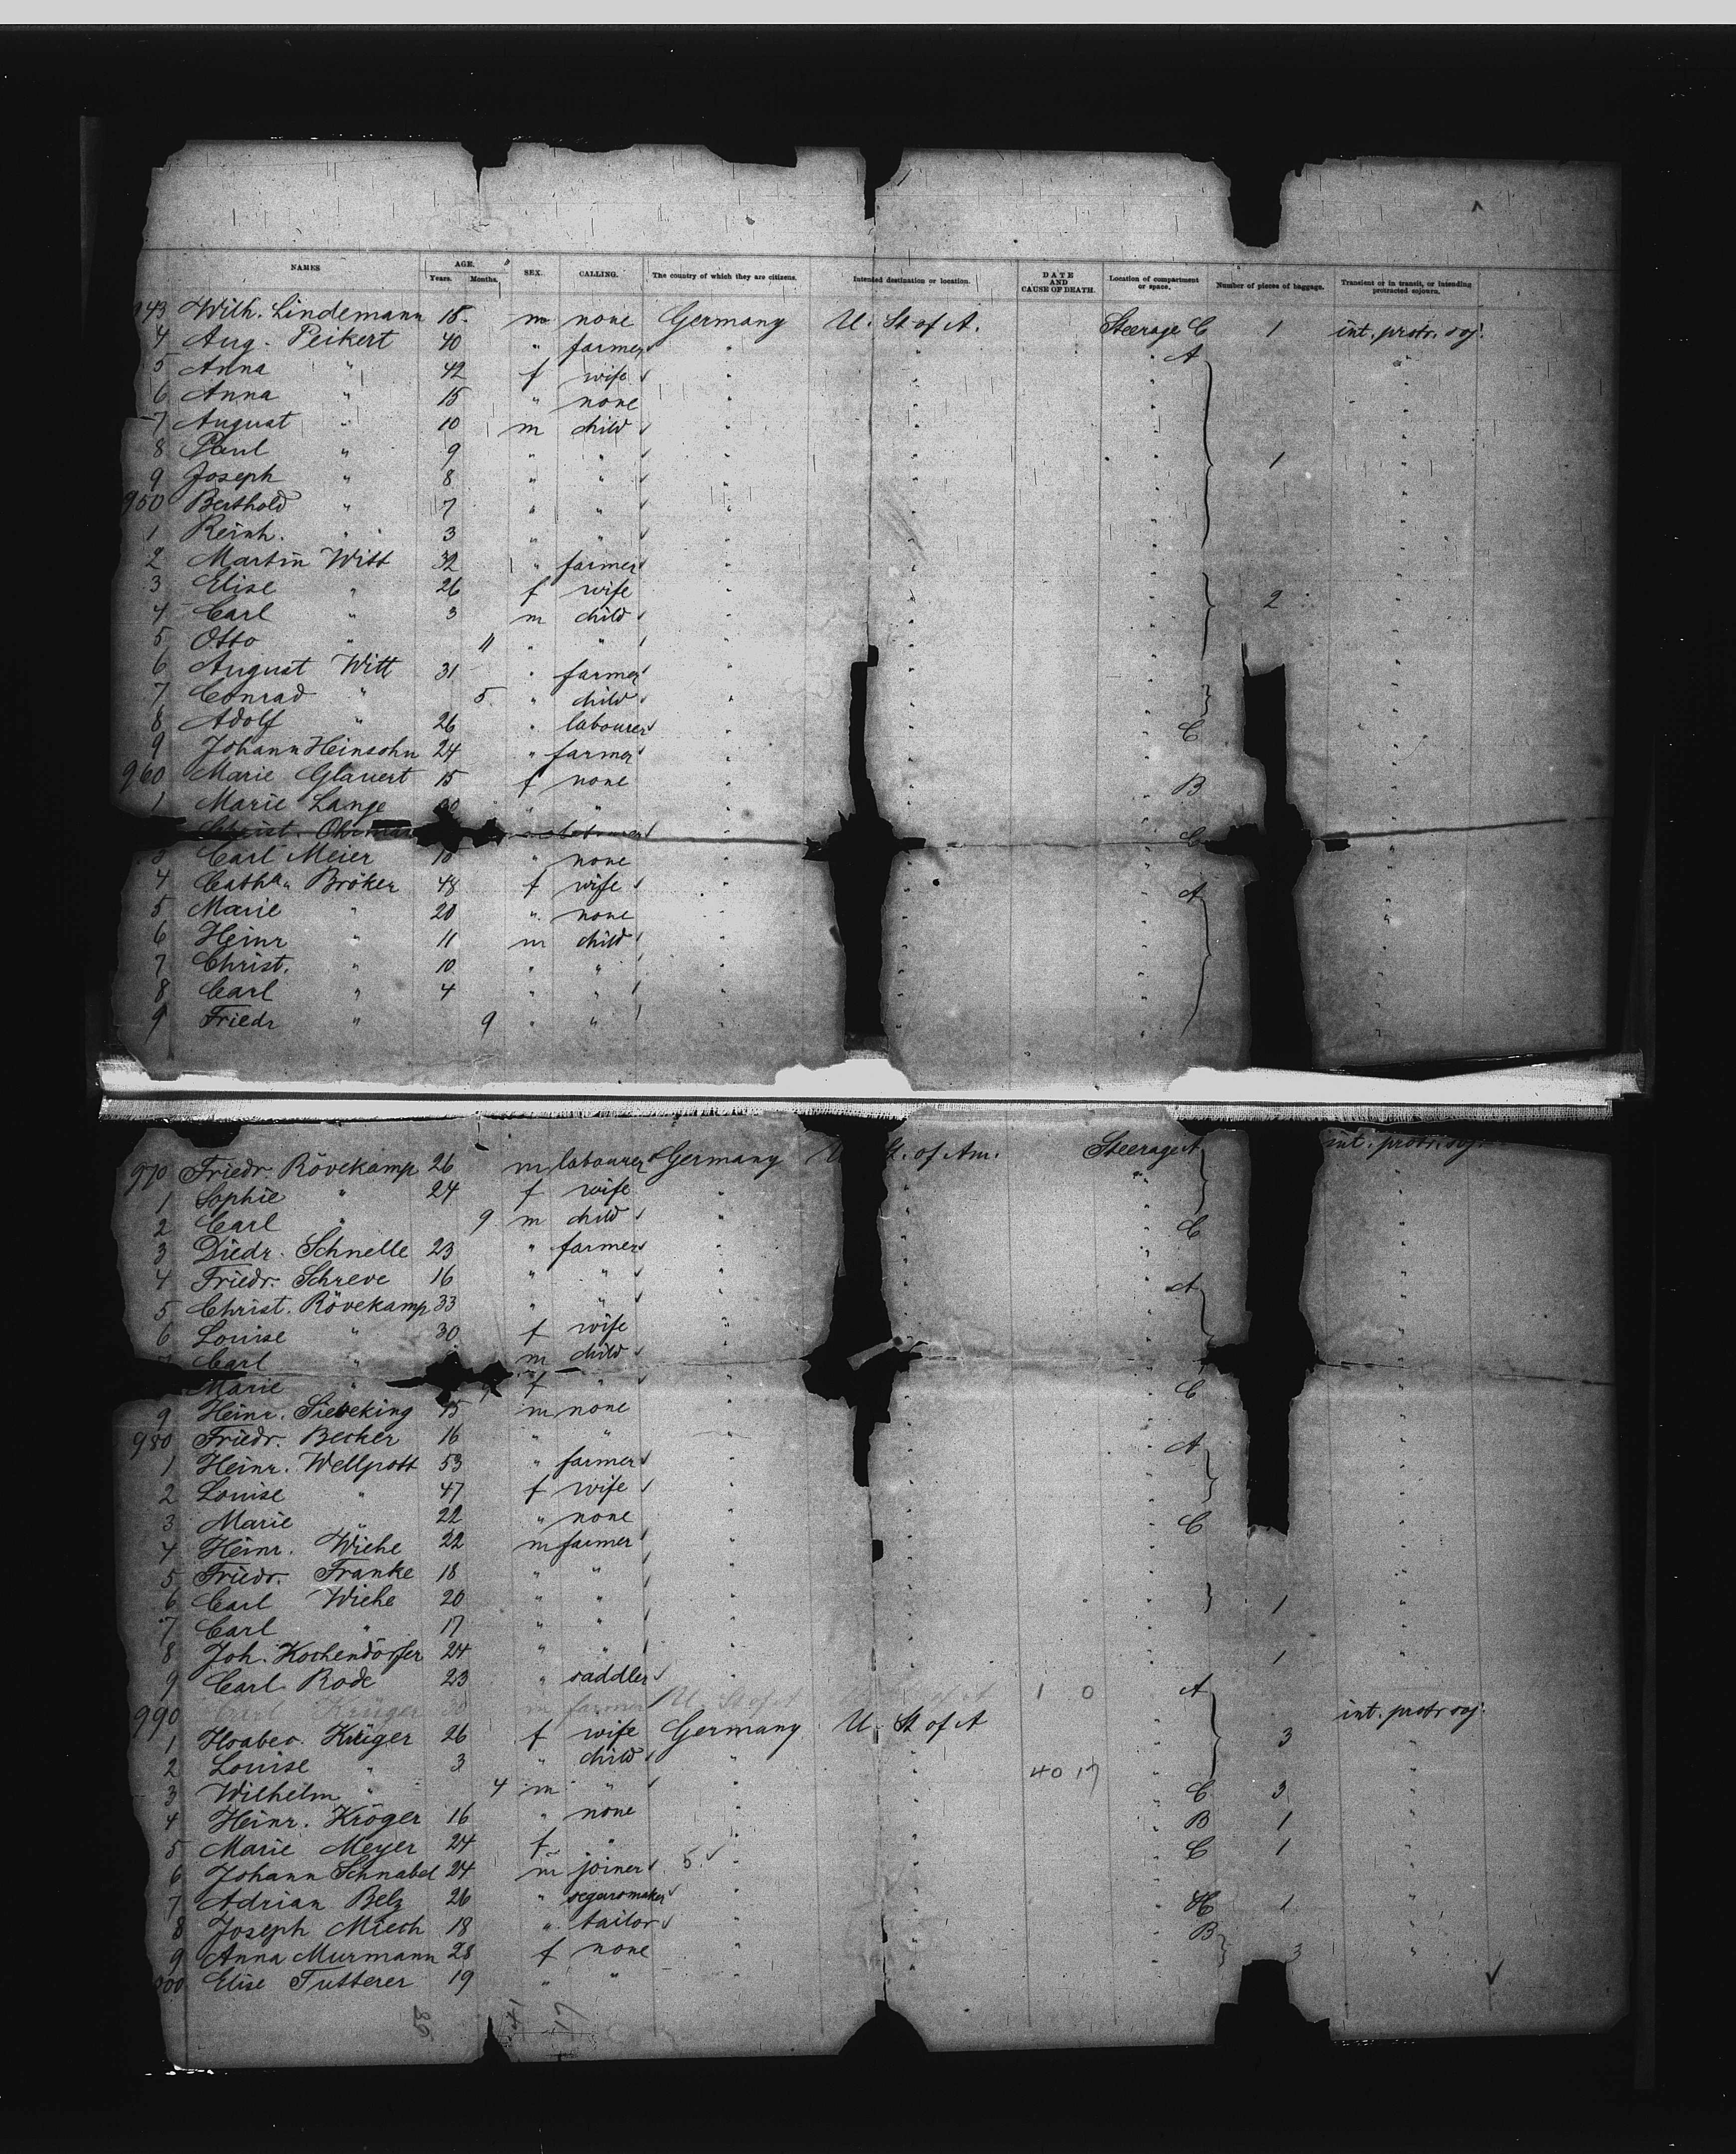 NAMES AGE. Years. Months. SEX. CALLING. The country of which they are citizens. Intended destination or location. DATE AND CAUSE OF DEATH. Location of compartment or space. Number of pieces of baggage. Transient or in transit, or intending protracted sojourn.
943 Wilh. Lindemann 18. m none Germany U. St of A. Steerage C 1 int. protr. soj.
4 Aug. Peikert 40 " farmer " " " A "
5 Anna " 42 f wife " " " "
6 Anna " 15 " none " " " "
7 August " 10 m child " " " "
8 Paul " 9 " " " " " 1 "
9 Joseph " 8 " " " " " "
950 Berthold " 7 " " " " " "
1 Reinh. " 3 " " " " " "
2 Martin Witt 32 " farmer " " " "
3 Elise " 26 f wife " " " 2 "
4 Carl " 3 m child " " " "
5 Otto " 11 " " " " " "
6 August Witt 31 " farmer " " " "
7 Conrad " 5 " child " " " "
8 Adolf " 26 " labourer " " C "
9 Johann Heinsohn 24 " farmer " " " "
960 Marie Glauert 15 f none " " B "
1 Marie Lange " " " " " "
Christ. " " C
3 Carl Meier " none " " " "
4 Cathn. Bröker 48 f wife " " " A "
5 Marie " 20 " none " " " "
6 Heinr " 11 m child " " " "
7 Christ. " 10 " " " " " "
8 Carl " 4 " " " " " "
9 Friedr " 9 " " " " " "
970 Friedr. Rövekamp 26 m labourer Germany U St. of Am. Steerage A int. protr. soj.
1 Sophie " 24 f wife " " " "
2 Carl " 9 m child " " " C "
3 Diedr. Schnelle 23 " farmer " " " "
4 Friedr. Schreve 16 " " " " " A "
5 Christ. Rövekamp 33 " " " " " "
6 Louise " 30 f wife " " " "
7 Carl " m child " " " "
Marie " f " " " " C "
9 Heinr. Sieveking 15 m none " " " "
980 Friedr. Becker 16 " " " " " A "
1 Heinr. Wellpott 53 " farmer " " " "
2 Louise " 47 f wife " " " "
3 Marie " 22 " none " " " C "
4 Heinr. Wiehe 22 m farmer " " " "
5 Friedr. Franke 18 " " " " " "
6 Carl Wiehe 20 " " " " " 1 "
7 Carl " 17 " " " " " "
8 Joh. Kochendörfer 24 " " " " " 1 "
9 Carl Rode 23 " saddler " " " A "
990 Carl Krüger 30 m farmer U. St of A 1 0 int. protr soj.
1 Krüger 26 f wife Germany U. St of A 3 "
2 Louise " 3 " child " " " "
3 Wilhelm " 4 m " " " 40 17 " C 3 "
4 Heinr. Kröger 16 " none " " " B 1 "
5 Marie Meyer 24 f " " " " C 1 "
6 Johann Schnabel 24 m joiner 5 " " " "
7 Adrian Belz 26 " segarsmaker " " " H 1 "
8 Joseph Miech 18 " tailor " " " B "
9 Anna Murmann 28 f none " " " 3 "
000 Elise Tutterer 19 " " " " "